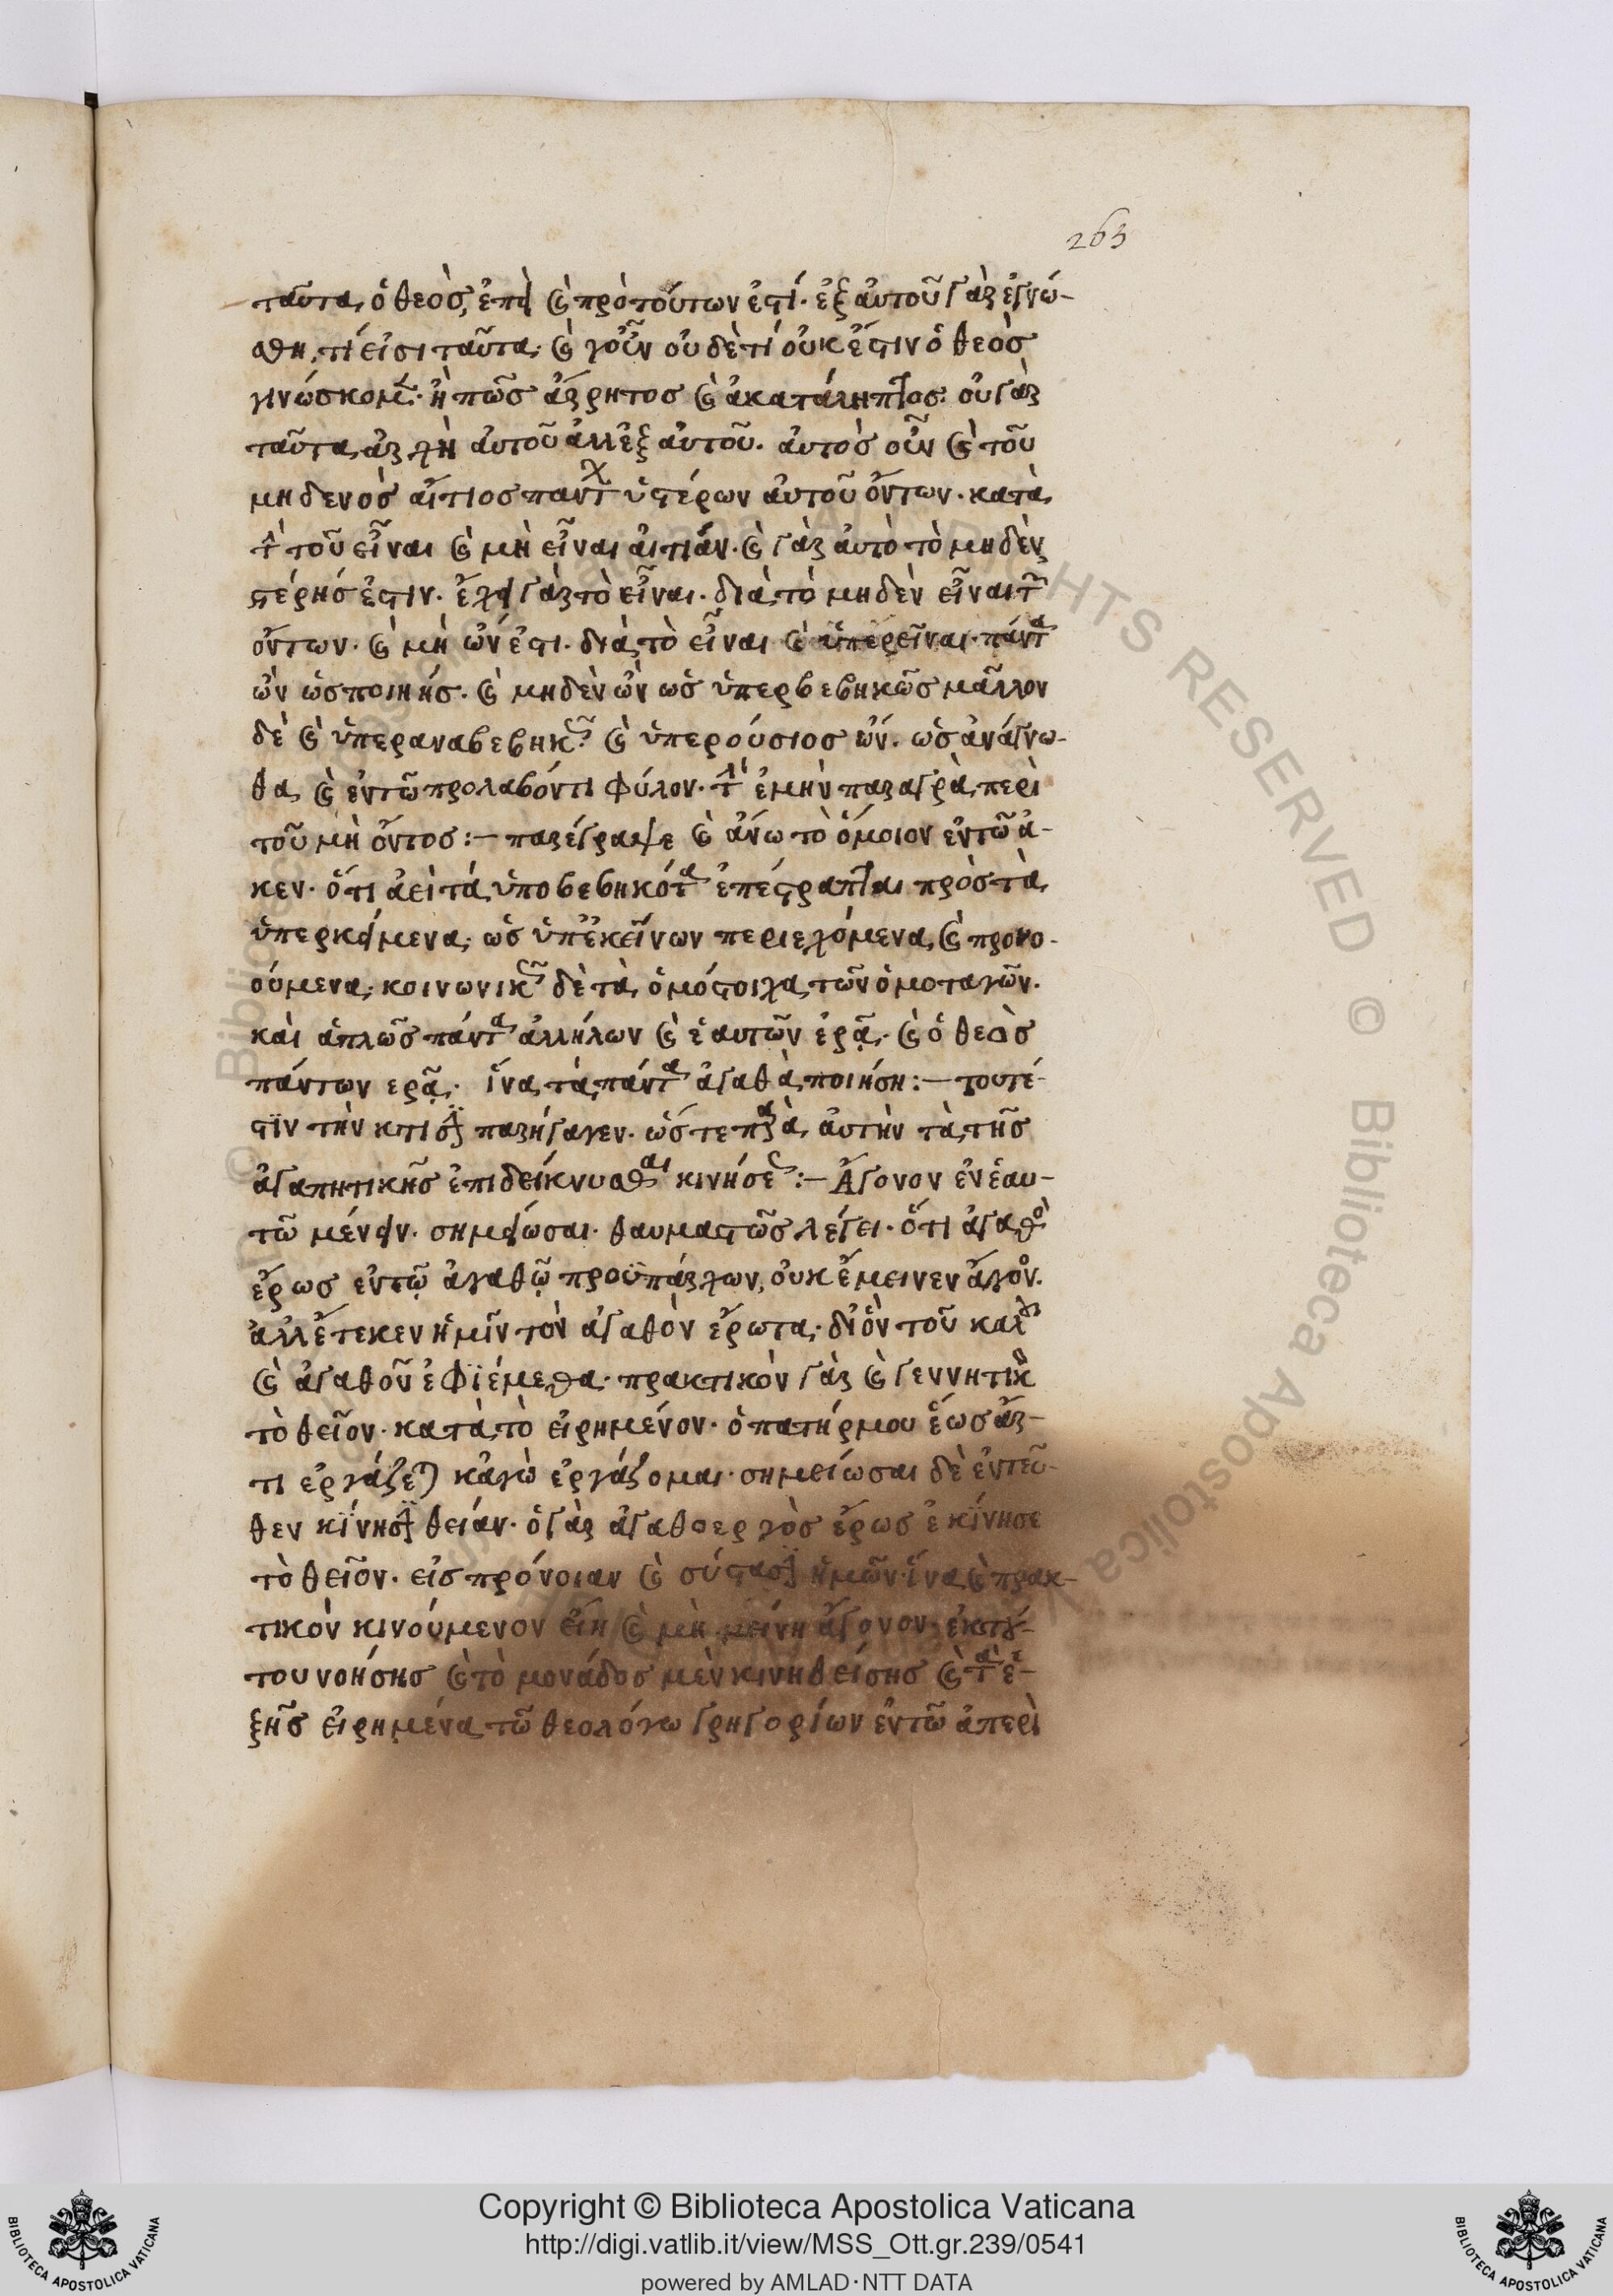 263
ταῦτα, ὁ θεὸς, ἐπεὶ καὶ πρὸ τούτων ἐστί. ἐξ αὐτοῦ γὰρ ἐγνώ-
σθη, τί εἰσι ταῦτα. καὶ γοῦν οὐδὲ τί οὐκ ἔστιν ὁ θεὸς
γινώσκομεν. ἢ πῶς ἄρρητος καὶ ἀκατάληπτος. οὐ γὰρ
ταῦτα ἀρχὴ αὐτοῦ ἀλλ' ἐξ αὐτοῦ. αὐτὸς οὖν καὶ τοῦ
μηδενὸς αἴτιος πάντων ὑστέρων αὐτοῦ ὄντων. κατὰ
τὴν τοῦ εἶναι καὶ μὴ εἶναι αἰτίαν. καὶ γὰρ αὐτὸ τὸ μηδὲν
στέρησίς ἐστιν. ἔχει γὰρ τὸ εἶναι. διὰ τὸ μηδὲν εἶναι τῶν
ὄντων. καὶ μὴ ὤν ἐστι. διὰ τὸ εἶναι καὶ ὑπερεῖναι. πάντα
ὢν ὡς ποιητής. καὶ μηδὲν ὢν ὡς ὑπερβεβηκῶς μᾶλλον
δὲ καὶ ὑπεραναβεβηκὼς καὶ ὑπερούσιος ὤν. ὡς ἀνάγνω-
θα, καὶ ἐν τῷ προλαβόντι φύλον. τὴν ἐμὴν παραγρὰ περὶ
τοῦ μὴ ὄντος :— παρέγραψε καὶ ἄνω τὸ ὅμοιον ἐν τῷ ἀ-
κεν. ὅτι ἀεὶ τὰ ὑποβεβηκότα ἐπέστραπται πρὸς τὰ
ὑπερκείμενα, ὡς ὑπ' ἐκείνων περιεχόμενα, καὶ προνο-
ούμενα. κοινωνικῶς δὲ τὰ ὁμόστοιχα τῶν ὁμοταγῶν.
καὶ ἁπλῶς πάντα ἀλλήλων καὶ ἑαυτῶν ἐρᾷ. καὶ ὁ θεὸς
πάντων ερᾷ. ἵνα τὰ πάντα ἀγαθὰ ποιήση :— τουτέ-
στϊν τὴν κτίσιν παρήγαγεν. ὥστε παρὰ αὐτὴν τὰ τῆς
ἀγαπητικῆς ἐπιδείκνυσθαι κινήσεως :— Ἄγονον ἐν ἑαυ-
τῷ μένειν. σημείωσαι. θαυμαστῶς λέγει. ὅτι ἀγαθὸς
ἔρως ἐν τῷ ἀγαθῷ προϋπάρχων, οὐκ ἔμεινεν ἄγονον.
ἀλλ' ἔτεκεν ἡμῖν τὸν ἀγαθὸν ἔρωτα. δι' ὃν τοῦ καλοῦ
καὶ ἀγαθοῦ ἐφϊέμεθα. πρακτικὸν γὰρ καὶ γεννητικὸν
τὸ θεῖον. κατὰ τὸ εἰρημένον. ὁ πατήρ μου ἕως ἄρ-
τι εργάζεται κἀγὼ ἐργάζομαι. σημείωσαι δὲ ἐντεῦ-
θεν κΐνησιν θείαν. ὁ γὰρ ἀγαθοεργὸς ἔρως ἐκΐνησε
τὸ θεῖον. εἰς πρόνοιαν καὶ σύστασιν ἡμῶν. ἵνα καὶ πρακ-
τικὸν κινούμενον εἴη καὶ μὴ μείνη ἄγονον. ἐκ τού-
του νοήσης καὶ τὸ μονάδος μὲν κινηθείσης καὶ τὰ ἑ-
ξῆς εἰρημένα τῷ θεολόγω γρηγορίων ἐν τῷ ἀ περὶ
Copyright © Biblioteca Apostolica Vaticana
http://digi.vatlib.it/view/MSS_Ott.gr.239/0541
powered by AMLAD·NTT DATA